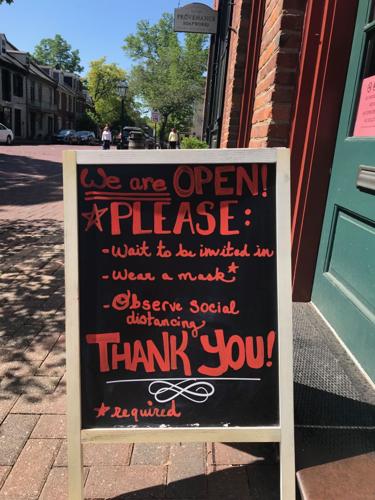 PROVENANCE
SOAPWORKS
We are OPEN!
*PLEASE:
- Wait to be invited in
- Wear a mask*
- Observe social
distancing
THANK YOU!
*required